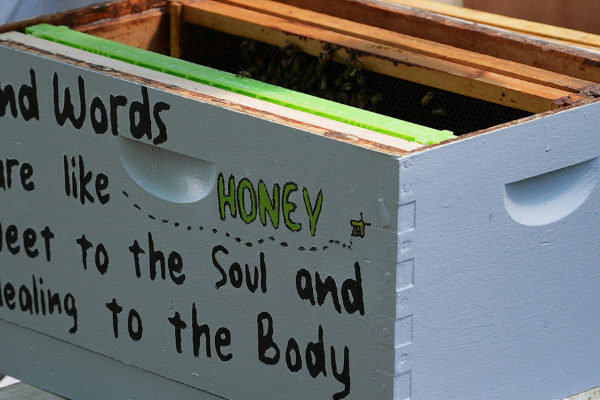 nd Words
are like HONEY
weet to the Soul and
Healing to the Body